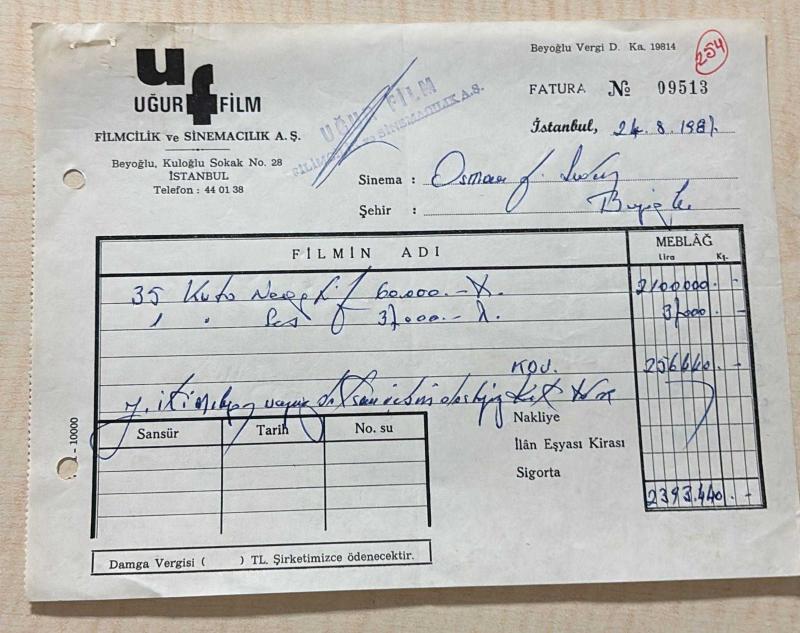 Beyoğlu Vergi D. Ka. 19814
254
uf
UĞUR FİLM
FİLMCİLİK ve SİNEMACILIK A. Ş.
Beyoğlu, Kuloğlu Sokak No. 28
İSTANBUL
Telefon : 44 01 38
UĞUR FİLM
FİLİMCİLİK ve SİNEMACILIK A.Ş.
FATURA № 09513
İstanbul, 24.8.198
Sinema : Osman F.
Şehir :
FİLMİN ADI
MEBLÂĞ
Lira Kş.
35 Kutu Negatif 60.000.- 2100000.-
1 " Ses 37.000.- 37000.-
KDV. 256440.-
Nakliye
İlân Eşyası Kirası
Sigorta
2393.440.-
Sansür Tarih No. su
- 10000
Damga Vergisi ( ) TL. Şirketimizce ödenecektir.